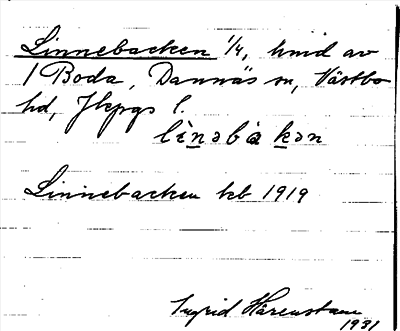 Linnebacken 1/4, hmd av
1 Boda, Dannäs sn, Västbo
hd, Jkpgs l.
lìnəbàkən
Linnebacken kb 1919
Ingrid Hårenstam
1931